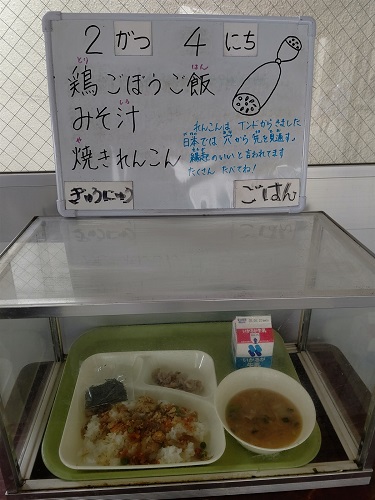 2 がつ 4 にち
とり はん
鶏ごぼうご飯
しる
みそ汁
や
焼きれんこん
れんこんは、インドからきました
日本では 穴から 先を見通す。
縁起のいいと言われてます
たくさん たべてね!
ぎゅうにゅう
ごはん